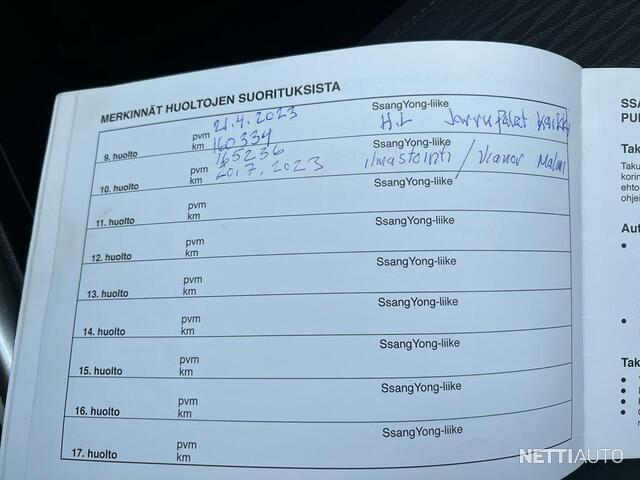 MERKINNÄT HUOLTOJEN SUORITUKSISTA
9. huolto pvm 21.4.2023 SsangYong-liike
km 160334 H.L Jarrupalat kaikki
10. huolto pvm 165236 SsangYong-liike
km 20.7.2023 ilmastointi / Vianor Malmi
11. huolto pvm SsangYong-liike
km
12. huolto pvm SsangYong-liike
km
13. huolto pvm SsangYong-liike
km
14. huolto pvm SsangYong-liike
km
15. huolto pvm SsangYong-liike
km
16. huolto pvm SsangYong-liike
km
17. huolto pvm SsangYong-liike
km
SSA
PUI
Tak
Taku
korin
ehto
ohjei
Aut
Tak
NETTIAUTO